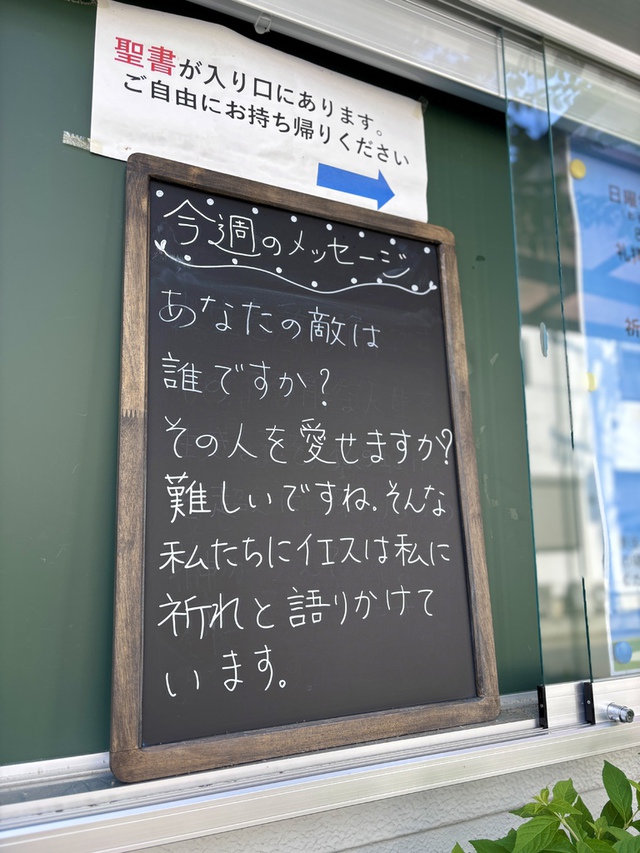 聖書が入り口にあります。
ご自由にお持ち帰りください
今週のメッセージ
あなたの敵は
誰ですか?
その人を愛せますか?
難しいですね.そんな
私たちにイエスは私に
祈れと語りかけて
います。
日曜
礼拝
祈